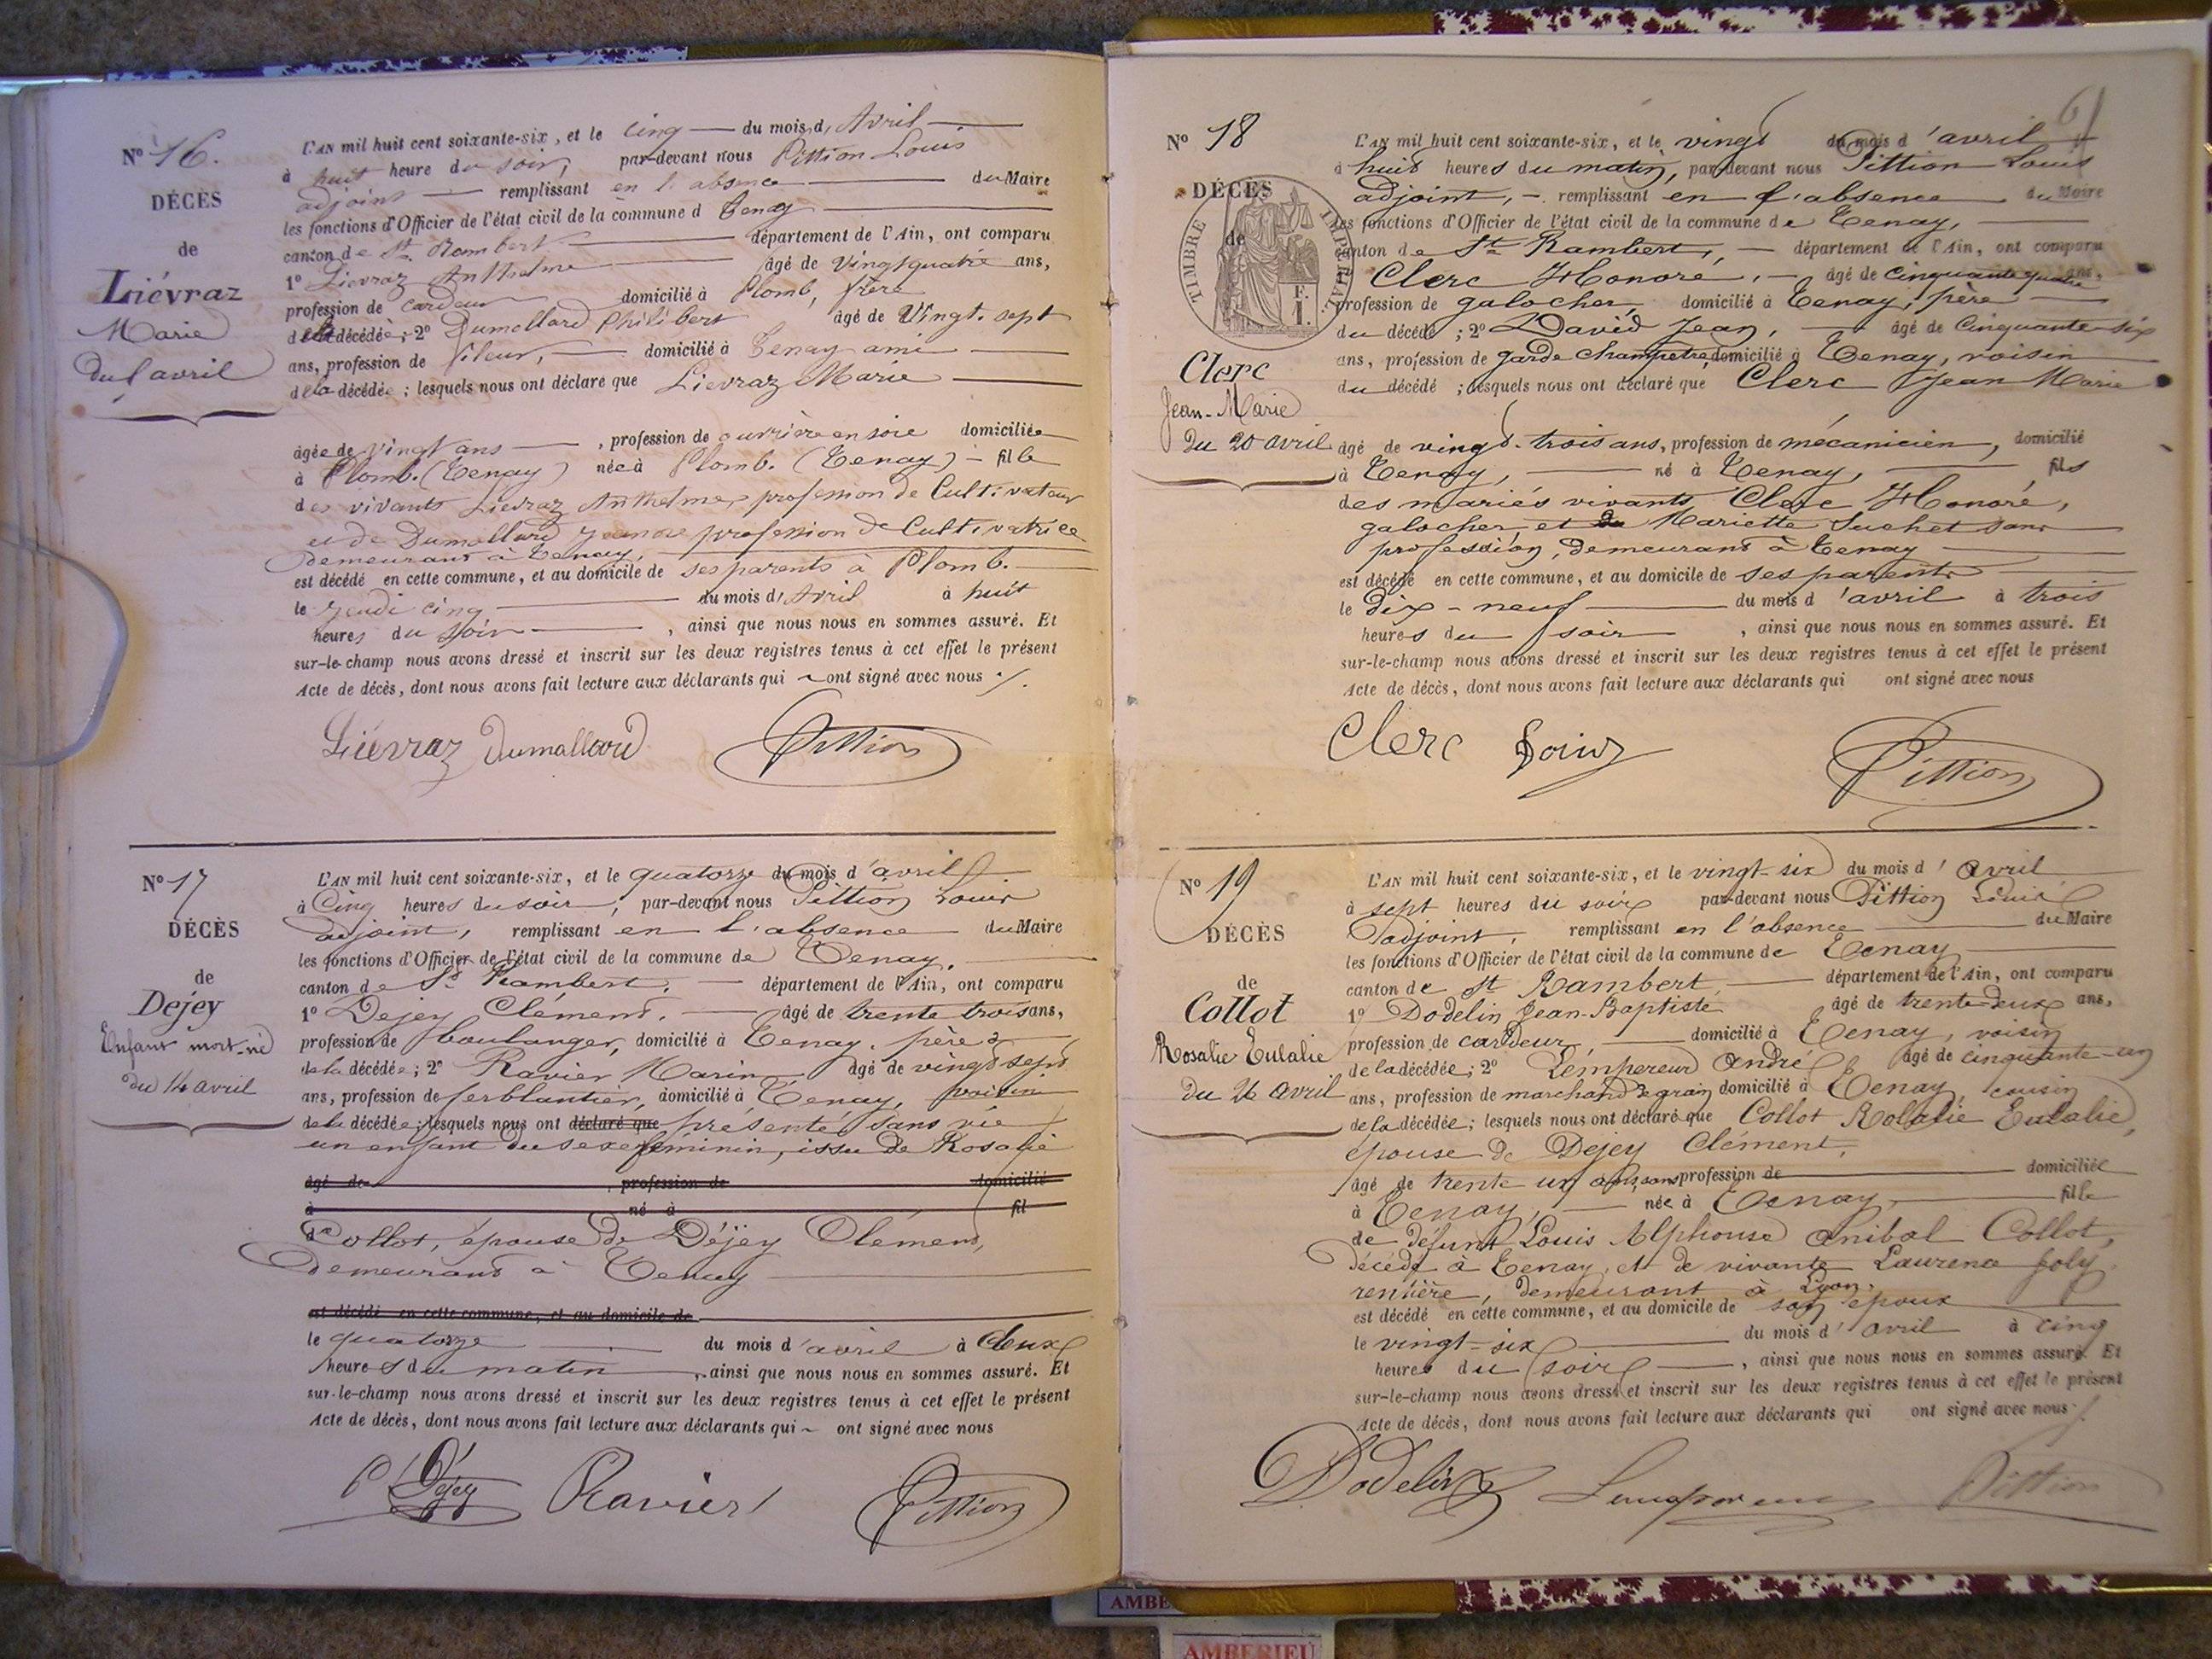 N° 16.
DÉCÈS
de
Liévraz
Marie
Du 5 avril
L'AN mil huit cent soixante-six, et le cinq du mois d, Avril
à huit heure du soir, par-devant nous Pittion Louis
adjoint remplissant en l'absence du Maire
les fonctions d'Officier de l'état civil de la commune d Tenay
canton de St. Rambert département de l'Ain, ont comparu
1° Lievraz Anthelme âgé de Vingt quatre ans,
profession de Cardeur domicilié à Plomb, frère
de la décédée; 2° Dumollard Philibert âgé de Vingt-sept
ans, profession de fileur, domicilié à Tenay ami
de la décédée; lesquels nous ont déclaré que Lievraz Marie
âgée de vingt ans, profession de ouvrière en soie domiciliée
à Plomb. (Tenay) née à Plomb. (Tenay) - fille
des vivants Lievraz Anthelme, profession de Cultivateur
et de Dumollard Jeanne profession de Cultivatrice
demeurant à Tenay.
est décédé en cette commune, et au domicile de ses parents à Plomb.
le Jeudi cinq du mois d, Avril à huit
heures du soir, ainsi que nous nous en sommes assuré. Et
sur-le-champ nous avons dressé et inscrit sur les deux registres tenus à cet effet le présent
Acte de décès, dont nous avons fait lecture aux déclarants qui ont signé avec nous
Liévraz Dumollard Pittion
N° 17
DÉCÈS
de
Dejey
Enfant mort-né
du 14 avril
L'AN mil huit cent soixante-six, et le quatorze du mois d'avril
à Cinq heures du soir, par-devant nous Pittion Louis
adjoint, remplissant en l'absence du Maire
les fonctions d'Officier de l'état civil de la commune de Tenay.
canton de St Rambert. département de l'Ain, ont comparu
1° Dejey Clément. âgé de trente trois ans,
profession de boulanger, domicilié à Tenay, père
de la décédée; 2° Ravier Marin âgé de vingt sept
ans, profession de ferblantier, domicilié à Tenay, voisin
de la décédée; lesquels nous ont déclaré que présenté sans vie
un enfant du sexe féminin, issu de Rosalie
âgé de , profession de domicilié
à né à fil
Collot, épouse de Déjey Clément,
demeurant à Tenay
est décédé en cette commune, et au domicile de
le quatorze du mois d'avril à deux
heures du matin, ainsi que nous nous en sommes assuré. Et
sur-le-champ nous avons dressé et inscrit sur les deux registres tenus à cet effet le présent
Acte de décès, dont nous avons fait lecture aux déclarants qui ont signé avec nous
Déjey Ravier Pittion
61
N° 18
DÉCÈS
de
TIMBRE IMPÉRIAL
Clerc
Jean-Marie
Du 20 avril
L'AN mil huit cent soixante-six, et le vingt du mois d'avril
à huit heures du matin, par-devant nous Pittion Louis
adjoint, remplissant en l'absence du Maire
les fonctions d'Officier de l'état civil de la commune de Tenay,
canton de St Rambert, département de l'Ain, ont comparu
Clerc Honoré, âgé de Cinquante quatre ans,
profession de galocher, domicilié à Tenay, père
du décédé; 2° David Jean, âgé de Cinquante-six
ans, profession de garde champetre, domicilié à Tenay, voisin
du décédé; lesquels nous ont déclaré que Clerc Jean Marie
âgé de vingt-trois ans, profession de mécanicien, domicilié
à Tenay, né à Tenay, fils
des mariés vivants Clerc Honoré,
galocher et Mariette Suchet sans
profession, demeurant à Tenay
est décédé en cette commune, et au domicile de ses parents
le dix-neuf du mois d'avril à trois
heures du soir, ainsi que nous nous en sommes assuré. Et
sur-le-champ nous avons dressé et inscrit sur les deux registres tenus à cet effet le présent
Acte de décès, dont nous avons fait lecture aux déclarants qui ont signé avec nous
Clerc Pittion
N° 19
DÉCÈS
de
Collot
Rosalie Eulalie
Du 26 avril
L'AN mil huit cent soixante-six, et le vingt-six du mois d'avril
à sept heures du soir par-devant nous Pittion Louis
adjoint, remplissant en l'absence du Maire
les fonctions d'Officier de l'état civil de la commune de Tenay
canton de St Rambert, département de l'Ain, ont comparu
1° Dodelin Jean-Baptiste âgé de trente-deux ans,
profession de cardeur, domicilié à Tenay, voisin
de la décédée; 2° Lempereur André âgé de cinquante-un
ans, profession de marchand de grain domicilié à Tenay, cousin
de la décédée; lesquels nous ont déclaré que Collot Rosalie Eulalie,
épouse de Dejey Clément,
âgé de trente un ans, sans profession de domiciliée
à Tenay, née à Tenay, fille
de défunt Louis Alphonse Anibal Collot,
décédé à Tenay, et de vivante Laurence Joly
rentière, demeurant à Lyon.
est décédé en cette commune, et au domicile de son époux
le vingt-six du mois d'avril à cinq
heures du soir, ainsi que nous nous en sommes assuré. Et
sur-le-champ nous avons dressé et inscrit sur les deux registres tenus à cet effet le présent
Acte de décès, dont nous avons fait lecture aux déclarants qui ont signé avec nous
Dodelin Pittion
AMBE
AMBERIEU